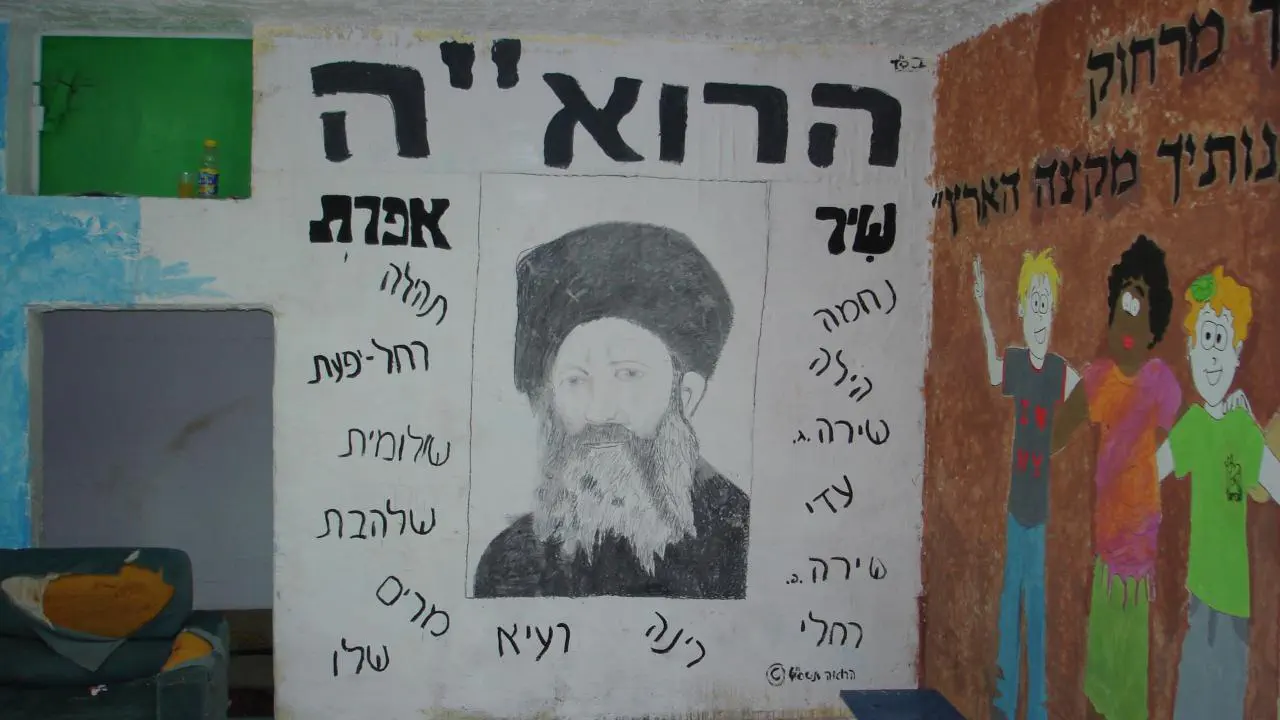 בס"ד
הרוא"ה
שיר
נחמה
הילה
שירה .ג.
עדי
שירה
רחלי
אפרת
תהלה
רחל-יפעת
שלומית
שלהבת
מרים
שלו
רעיא
רינה
© הרואה
ך מרחוק
נותיך מקצה הארץ"